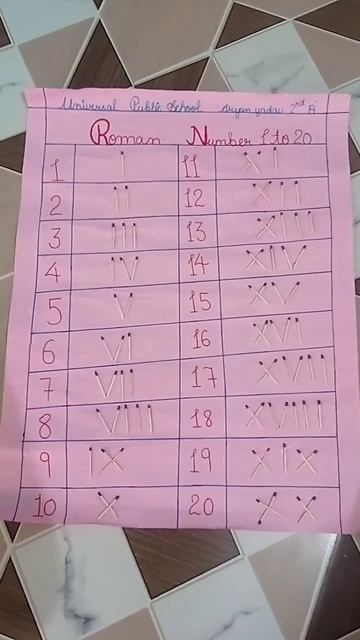 Universal Public School Aryan yadav 2nd A
Roman Number 1 to 20
1 I 11 XI
2 II 12 XII
3 III 13 XIII
4 IV 14 XIV
5 V 15 XV
6 VI 16 XVI
7 VII 17 XVII
8 VIII 18 XVIII
9 IX 19 XIX
10 X 20 XX